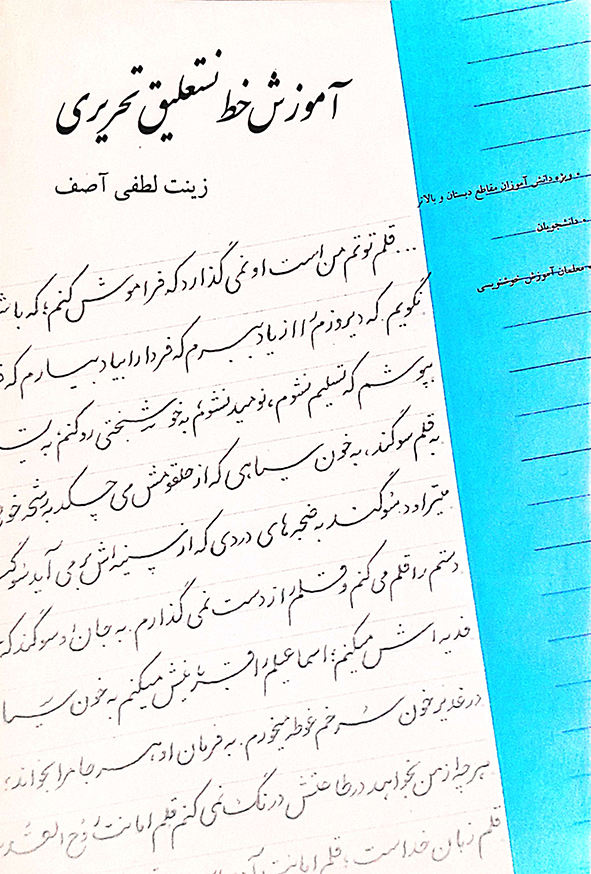 آموزش خط نستعلیق تحریری
زینت لطفی آصف
ویژه دانش آموزان مقاطع دبستان و بالاتر
دانشجویان
معلمان آموزش خوشنویسی
... قلم توتم من است او نمی گذارد که فراموش کنم، که با
نگویم. که دیروزم را از یاد ببرم که فردا را بیاد بیارم که
بپوشم که تسلیم نشوم، نومید نشوم، به خوشبختی رو کنم، به
به قلم سوگند، به خون سیاهی که از حلقومش می چکد به رشحه
میتراود سوگند به ضجه‌های دردی که از سینه اش بر می آید
دستم را قلم می کنم و قلم را از دست نمی گذارم. به جان او سوگند که
فدیه اش میکنم؛ اسماعیلم را قربانیش میکنم به خون
در غدیر خون سرخم غوطه میخورم. به فرمان او هر جا مرا بخواند،
هر چه از من بخواهد در طاعتش درنگ نمی کنم قلم امانت روح القدس
قلم زبان خداست؛ قلم امانت